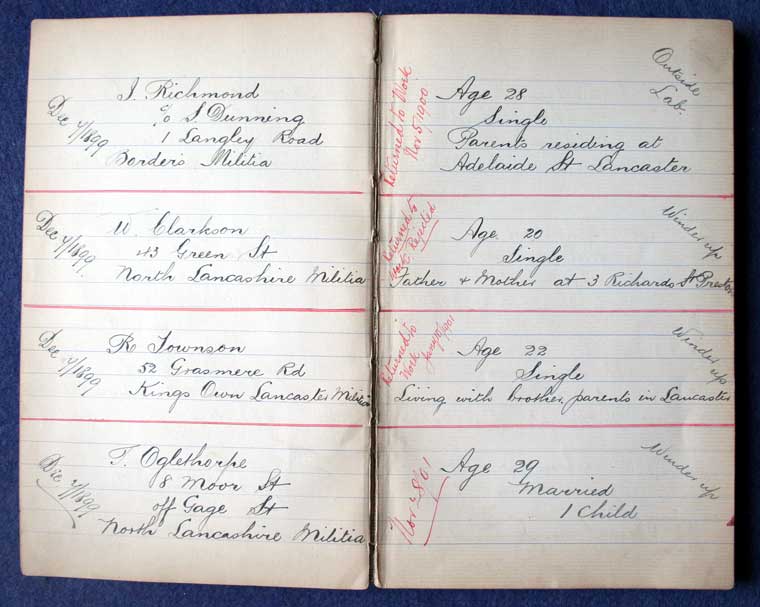 Dec 4/1899
J. Richmond
c/o S Dunning
1 Langley Road
Borders Militia
Returned to Work
Nov 5/1900
Age 28
Single
Parents residing at
Adelaide St Lancaster
Outside
Lab.
Dec 4/1899
W. Clarkson
43 Green St
North Lancashire Militia
Returned to
Work Rejected
Age 20
Single
Father & Mother at 3 Richards St Preston
Winder up
Dec 4/1899
R Townson
52 Grasmere Rd
Kings Own Lancaster Militia
Returned to
Work
1901
Age 22
Single
Living with brother, parents in Lancaster
Winder up
Dec 4/1899
T. Oglethorpe
8 Moor St
off Gage St
North Lancashire Militia
Nov 28/01
Age 29
Married
1 Child
Winder up